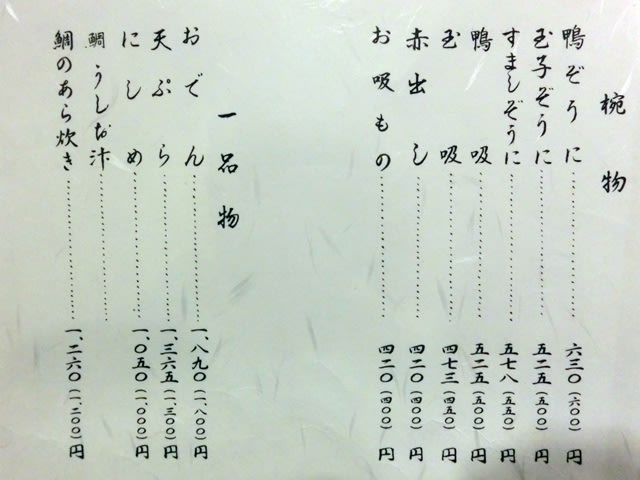 椀物
鴨ぞうに 六三〇(六〇〇)円
玉子ぞうに 五二五(五〇〇)円
すましぞうに 五七八(五五〇)円
鴨吸 五二五(五〇〇)円
玉吸 四七三(四五〇)円
赤出し 四二〇(四〇〇)円
お吸もの 四二〇(四〇〇)円
一品物
おでん 一、八九〇(一、八〇〇)円
天ぷら 一、三六五(一、三〇〇)円
にしめ 一、〇五〇(一、〇〇〇)円
鯛うしお汁
鯛のあら炊き 一、二六〇(一、二〇〇)円